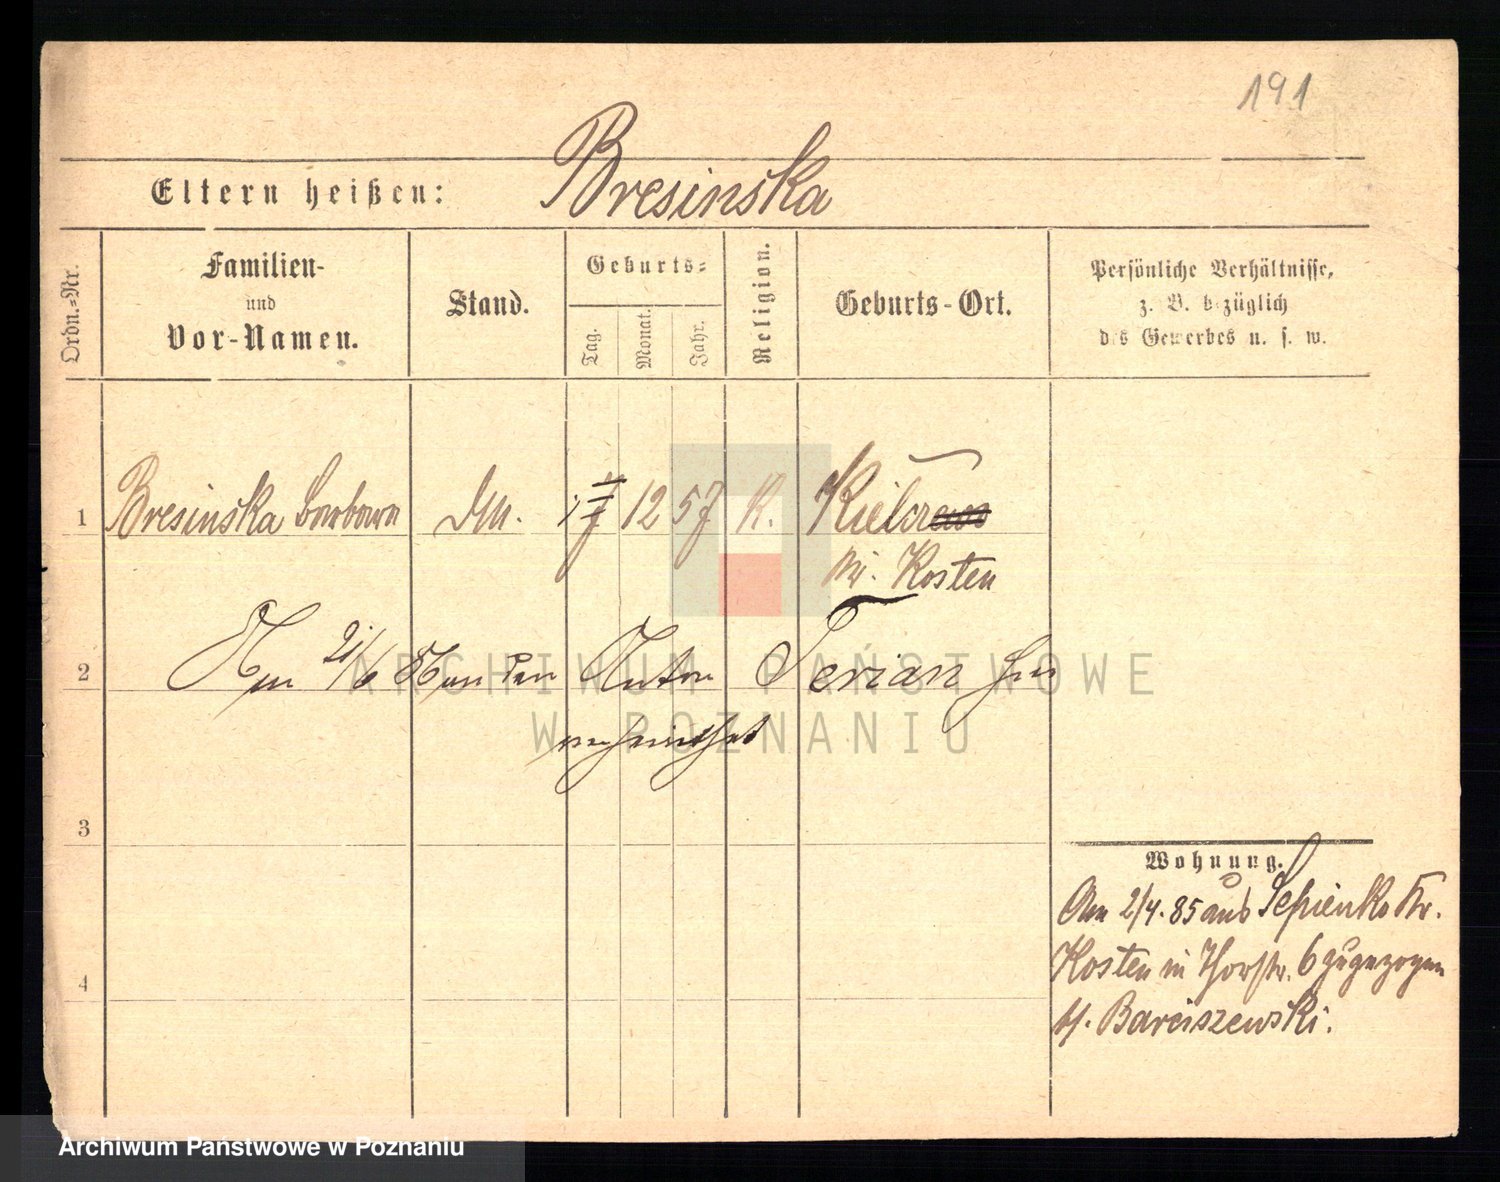 191
Eltern heißen: Bresinska
Ordn.=Nr.
Familien-
und
Vor-Namen.
Stand.
Geburts=
Tag.
Monat.
Jahr.
Religion.
Geburts-Ort.
Persönliche Verhältnisse,
z. B. bezüglich
des Gewerbes u. s. w.
1 Bresinska Barbara DM. 12 57 K.
Kr. Kosten
2 Am 21/6 86 an den Anton Terian hier
verheirathet
3
Wohnung.
Am 2/4. 85 aus Sepienko Kr.
Kosten in Thorstr. 6 zugezogen
4
b/. Barciszewski.
ARCHIWUM PAŃSTWOWE
W POZNANIU
Archiwum Państwowe w Poznaniu